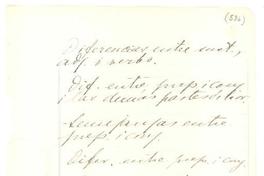 (586)
Diferencias entre sust.,
adj. i verbo.
Dif. entre prep. i conj.
i las demás partes
Semejanzas entre
prep. i conj.
Difer. entre prep. i conj.